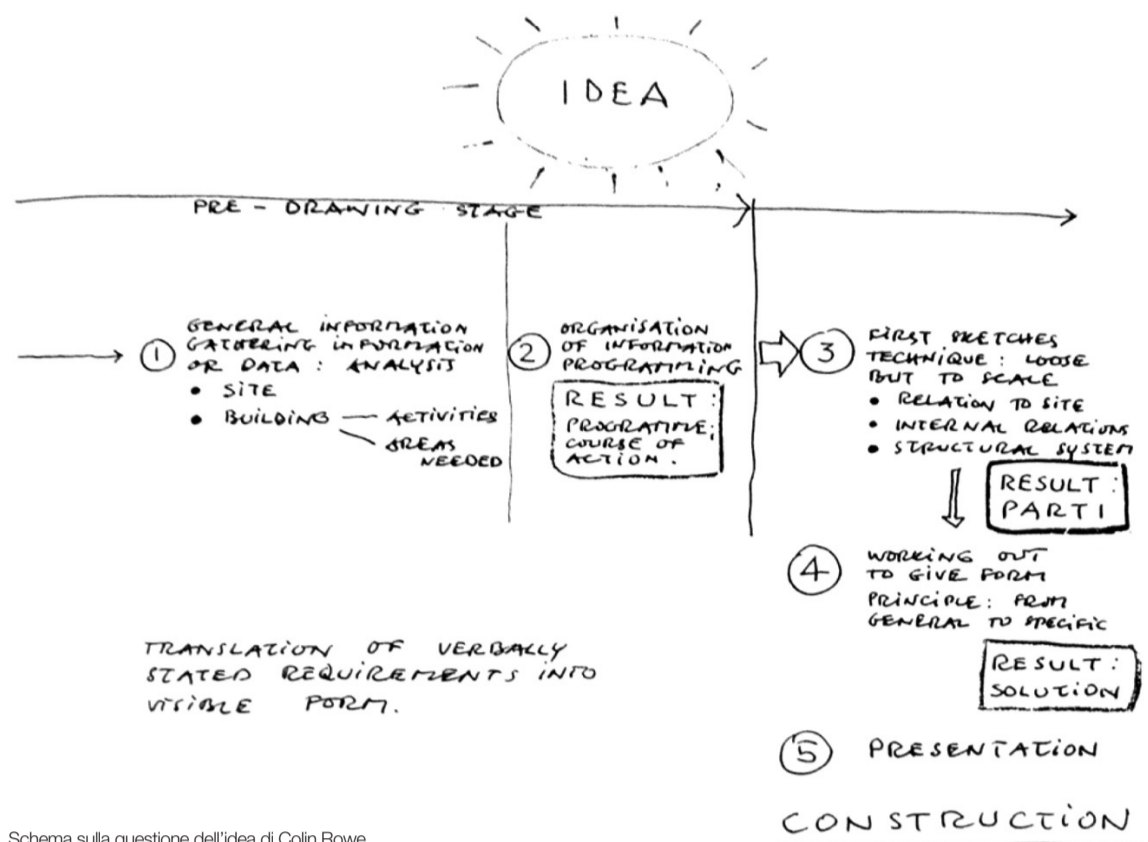 IDEA
PRE - DRAWING STAGE
1
GENERAL INFORMATION
GATHERING INFORMATION
OR DATA : ANALYSIS
• SITE
• BUILDING — ACTIVITIES
AREAS
NEEDED
2
ORGANISATION
OF INFORMATION
PROGRAMMING
RESULT :
PROGRAMME;
COURSE OF
ACTION.
3
FIRST SKETCHES
TECHNIQUE : LOOSE
BUT TO SCALE
• RELATION TO SITE
• INTERNAL RELATIONS
• STRUCTURAL SYSTEM
RESULT :
PARTI
4
WORKING OUT
TO GIVE FORM
PRINCIPLE : FROM
GENERAL TO SPECIFIC
RESULT :
SOLUTION
TRANSLATION OF VERBALLY
STATED REQUIREMENTS INTO
VISIBLE FORM.
5
PRESENTATION
CONSTRUCTION
Schema sulla questione dell'idea di Colin Rowe